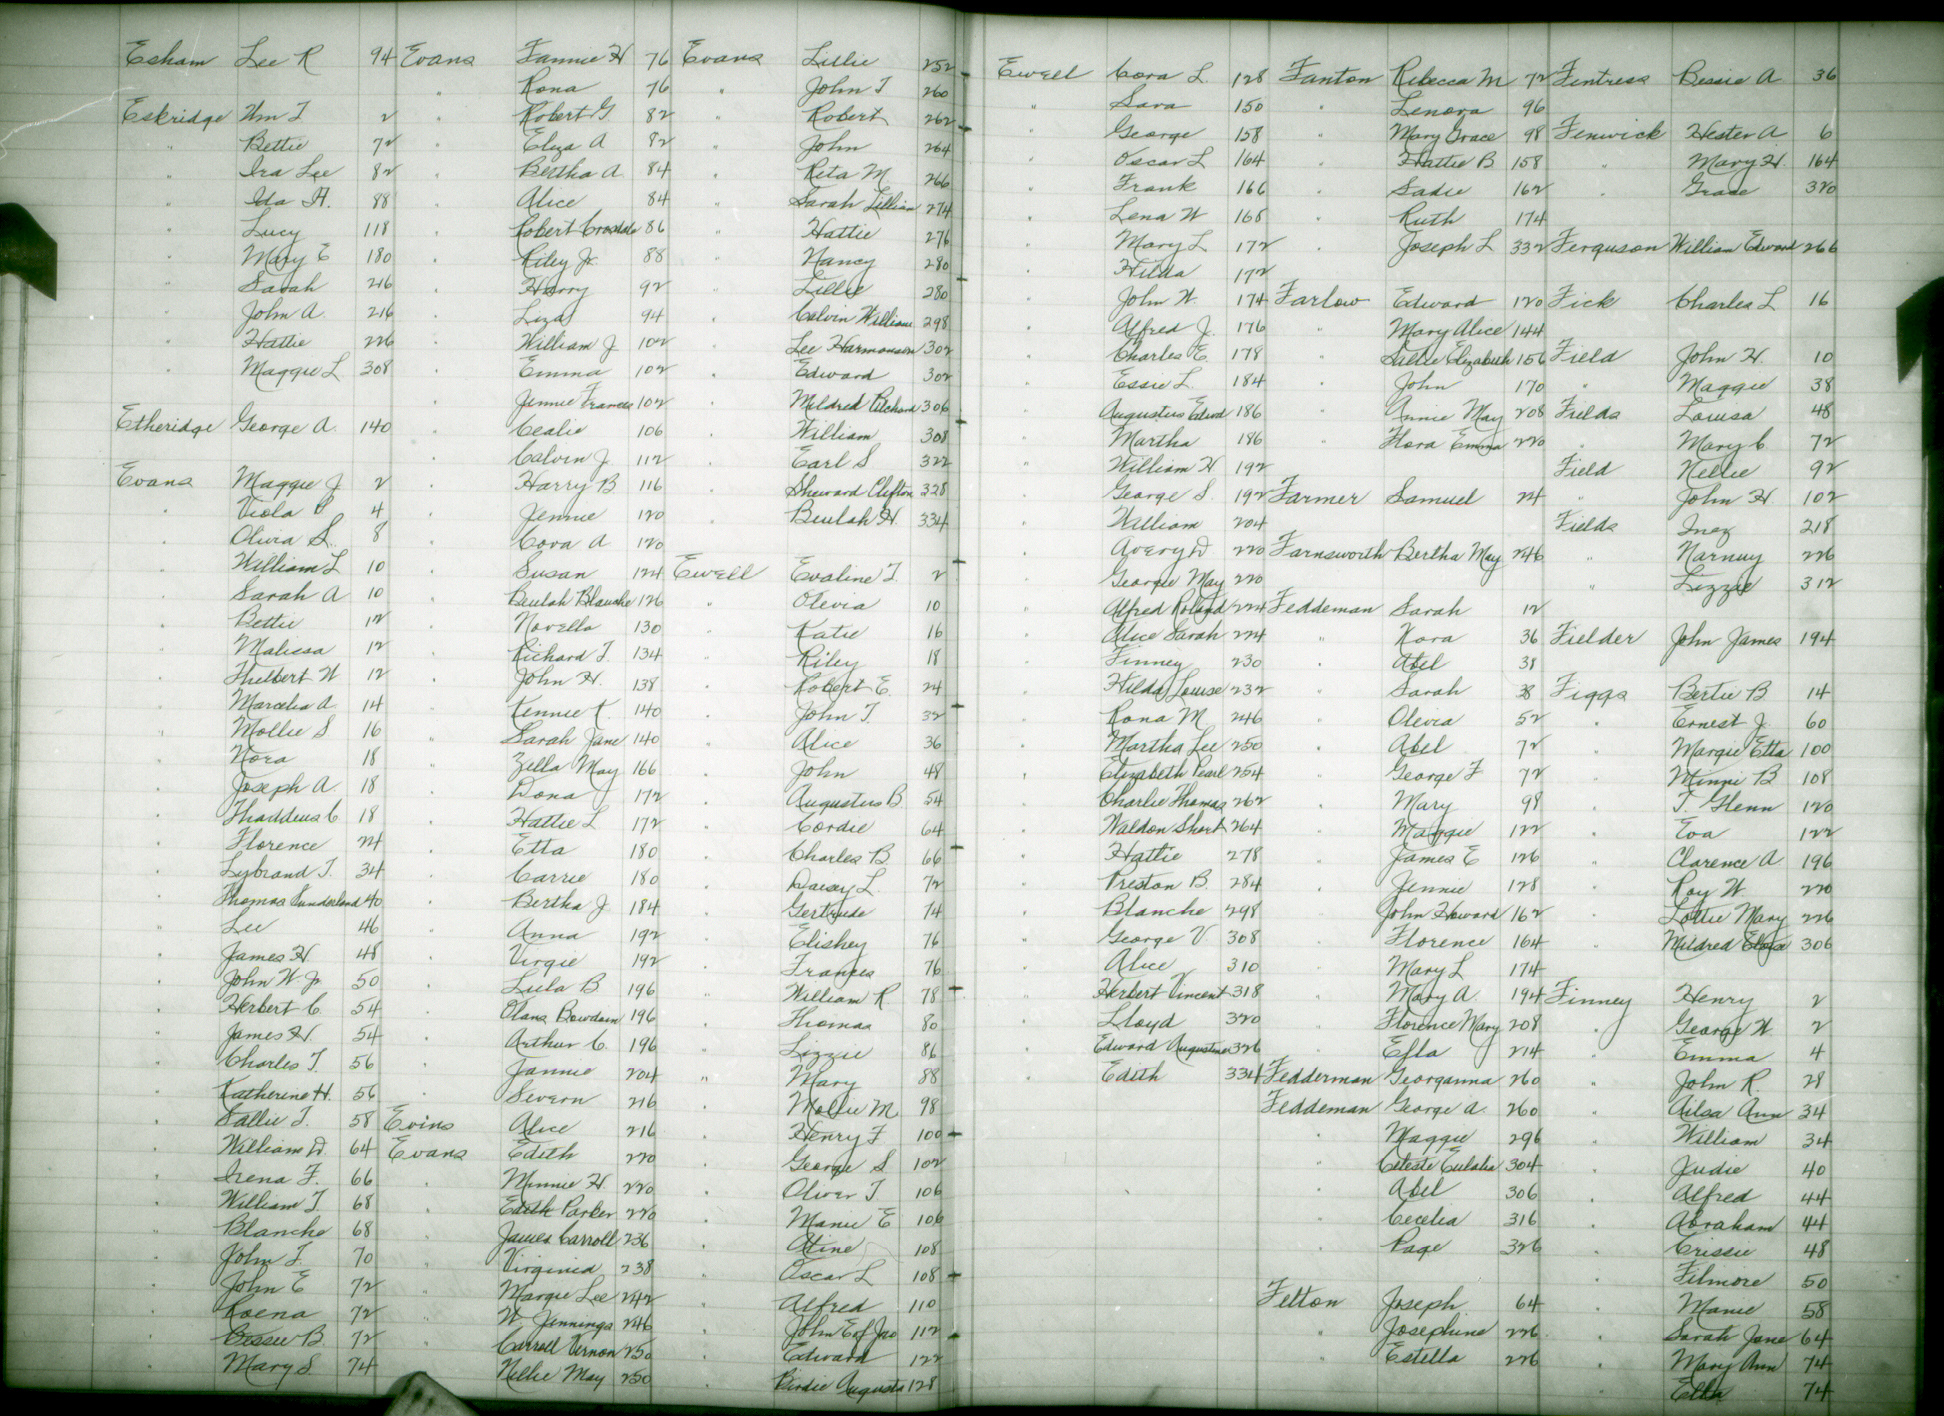 Esham Lee R 94
Eskridge Wm T 2
" Bettie 72
" Ira Lee 82
" Ida H. 88
" Lucy 118
" Mary E 180
" Sarah 216
" John A. 216
" Hattie 226
" Maggie L 308
Etheridge George A. 140
Evans Maggie J 2
" Viola 4
" Olivia S. 8
" William L 10
" Sarah A 10
" Bettie 12
" Malissa 12
" Hulbert W 12
" Marcelia A. 14
" Mollie S 16
" Nora 18
" Joseph A 18
" Thaddeus C 18
" Florence 24
" Lybrand T. 34
" Thomas Sunderland 40
" Lee 46
" James H 48
" John W Jr 50
" Herbert C. 54
" James H. 54
" Charles T. 56
" Katherine H. 56
" Sallie T. 58
" William D. 64
" Irena F. 66
" William T 68
" Blanche 68
" John T. 70
" John E 72
" Roena 72
" Cassie B. 72
" Mary S. 74
Evans Fannie H 76
" Rona 76
" Robert G 82
" Eliza A 82
" Bertha A. 84
" Alice 84
" Robert 86
" Riley Jr. 88
" Harry 92
" Liza 94
" William J 102
" Emma 102
" Jennie Frances 102
" Cealie 106
" Calvin J. 112
" Harry B 116
" Jennie 120
" Cora A 120
" Susan 124
" Beulah Blanche 126
" Novella 130
" Richard T. 134
" John H. 138
" Kennie K. 140
" Sarah Jane 140
" Zella May 166
" Dona J 172
" Hattie L 172
" Etta 180
" Carrie 180
" Bertha J 184
" Anna 192
" Virgie 192
" Lula B 196
" Olans Bowdoin 196
" Arthur C. 196
" Fannie 204
" Severn 216
Evins Alice 216
Evans Edith 220
" Minnie H. 220
" Edith Parker 220
" James Carroll 236
" Virginia 238
" Margie Lee 242
" W. Jennings 246
" Carroll Vernon 250
" Nellie May 250
Evans Lillie 252
" John T 260
" Robert 262
" John 264
" Reta M. 266
" Sarah Lillian 274
" Hattie 276
" Nancy 280
" Lillie 280
" Calvin William 298
" Lee Harmonson 302
" Edward 302
" Mildred Pilchard 306
" William 308
" Earl S 322
" Sheward Clifton 328
" Beulah H. 334
Ewell Evaline T. 2
" Olevia 10
" Katie 16
" Riley 18
" Robert E. 24
" John T. 32
" Alice 36
" John 48
" Augustus B 54
" Cordie 64
" Charles B 66
" Daisy L. 72
" Gertrude 74
" Elishey 76
" Frances 76
" William R 78
" Thomas 80
" Lizzie 86
" Mary 88
" Mollie M 98
" Henry F 100
" George S 102
" Oliver T 106
" Manie E 106
" Atine 108
" Oscar L 108
" Alfred 110
" John E of Jno 112
" Edward 122
" Birdie Augusta 128
Ewell Cora L. 128
" Sara 150
" George 158
" Oscar L 164
" Frank 166
" Lena W 168
" Mary L 172
" Hilda 172
" John W. 174
" Alfred J. 176
" Charles E. 178
" Essie L. 184
" Augustus Edwd 186
" Martha 186
" William H 192
" George S. 192
" William 204
" Avery D 220
" George May 220
" Alfred Roland 224
" Alice Sarah 224
" Finney 230
" Hilda Louise 232
" Rona M 246
" Martha Lee 250
" Elizabeth Pearl 254
" Charlie Thomas 262
" Waldon Short 264
" Hattie 278
" Preston B. 284
" Blanche 298
" George V. 308
" Alice 310
" Herbert Vincent 318
" Lloyd 320
" Edward Augustine 326
" Edith 334
Fanton Rebecca M 72
" Lenora 96
" Mary Grace 98
" Hattie B 158
" Sadie 162
" Ruth 174
" Joseph L 332
Farlow Edward 120
" Mary Alice 144
" Sallie Elizabeth 156
" John 170
" Annie May 208
" Flora Emma 220
Farmer Samuel 24
Farnsworth Bertha May 246
Feddeman Sarah 12
" Nora 36
" Abel 38
" Sarah 38
" Olevia 52
" Abel 72
" George F 72
" Mary 98
" Maggie 122
" James E 126
" Jennie 128
" John Howard 162
" Florence 164
" Mary L 174
" Mary A. 194
" Florence Mary 208
" Effa 214
Fedderman Georganna 260
Feddeman George A. 260
" Maggie 296
" Celeste Eulalia 304
" Abel 306
" Cecelia 316
" Page 326
Felton Joseph 64
" Josephine 226
" Estella 226
Fentress Bessie A 36
Fenwick Hester A 6
" Mary H. 164
" Grace 320
Ferguson William Edward 266
Fick Charles L 16
Field John H. 10
" Maggie 38
Fields Louisa 48
" Mary C 72
Field Nellie 92
" John H. 102
Fields Inez 218
" Narnuy 226
" Lizzie 312
Fielder John James 194
Figgs Bertie B 14
" Ernest J. 60
" Margie Etta 100
" Minnie B 108
" T. Glenn 120
" Eva 122
" Clarence A. 196
" Roy W 220
" Lottie Mary 226
" Mildred Eloise 306
Finney Henry 2
" George W 2
" Emma 4
" John R 28
" Ailsa Ann 34
" William 34
" Judie 40
" Alfred 44
" Abraham 44
" Crissie 48
" Filmore 50
" Manie 58
" Sarah Jane 64
" Mary Ann 74
" Ella 74